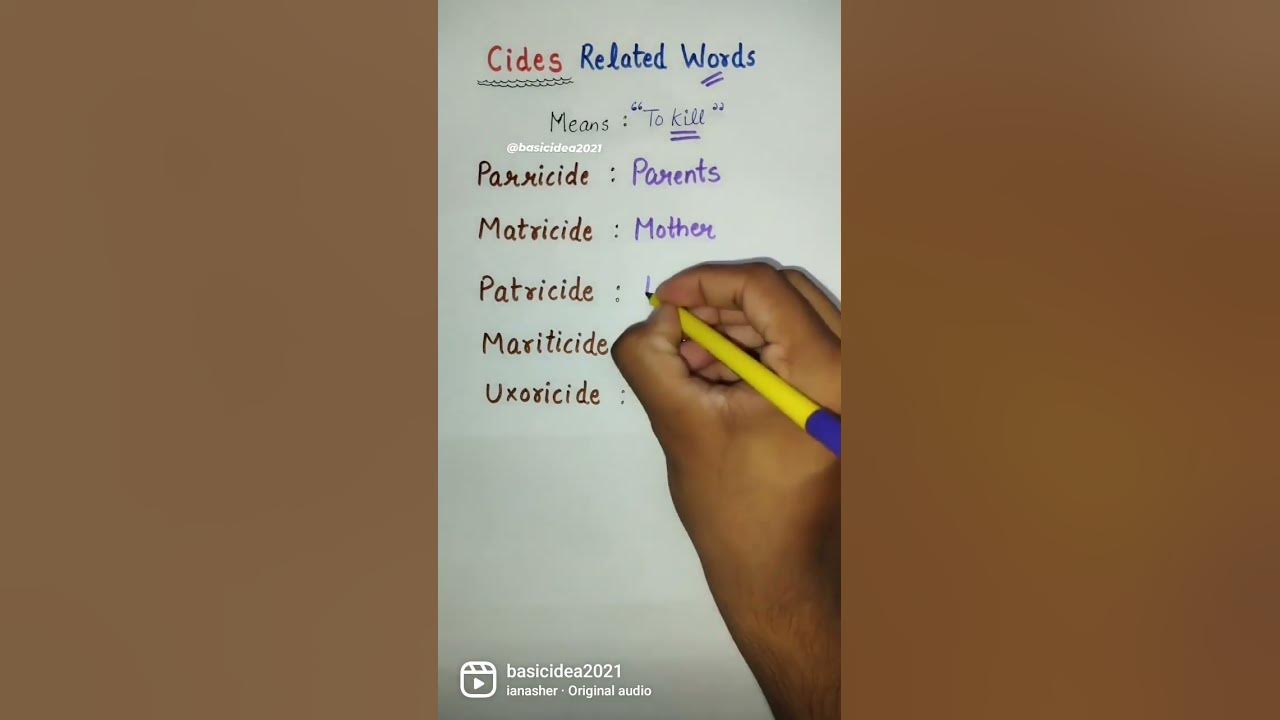 Cides Related Words
Means : "To kill"
@basicidea2021
Parricide : Parents
Matricide : Mother
Patricide :
Mariticide
Uxoricide :
basicidea2021
ianasher · Original audio